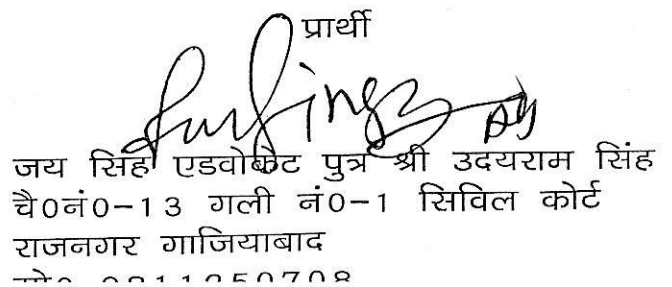 प्रार्थी
जय सिंह एडवोकेट पुत्र श्री उदयराम सिंह
चै0नं0-13 गली नं0-1 सिविल कोर्ट
राजनगर गाजियाबाद